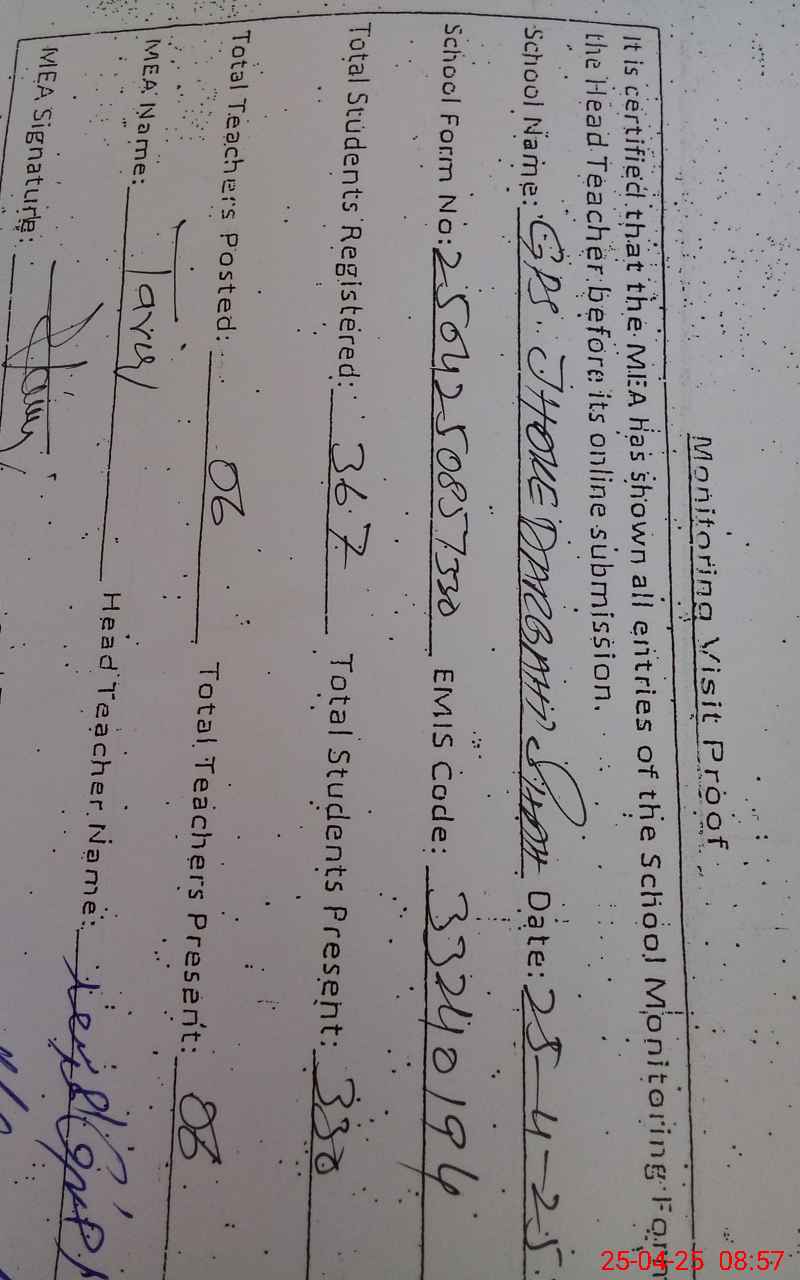 Monitoring Visit Proof
It is certified that the MEA has shown all entries of the School Monitoring Form
the Head Teacher before its online submission.
School Name: GPS. JHOKE Shah Date: 25-4-25
School Form No: 2504250857330 EMIS Code: 33240194
Total Students Registered: 367 Total Students Present: 330
Total Teachers Posted: 06 Total Teachers Present: 06
MEA Name: Head Teacher Name:
MEA Signature:
25-04-25 08:57